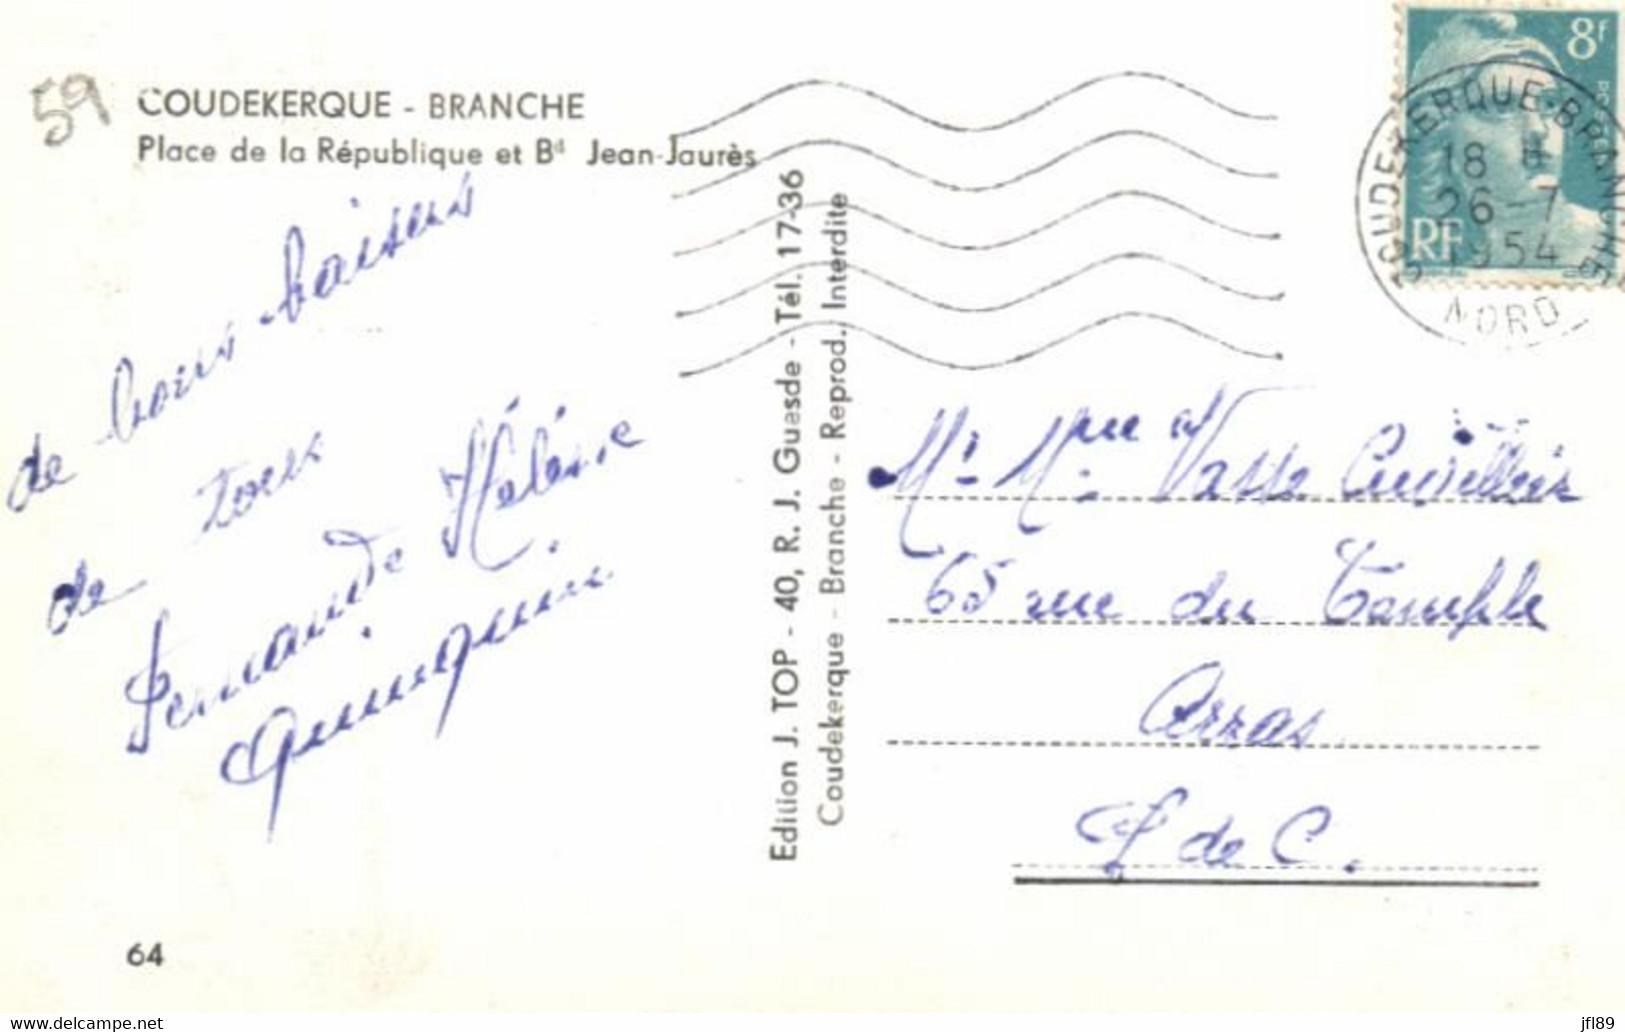 59
COUDEKERQUE - BRANCHE
Place de la République et Bd Jean-Jaurès
de bons baisers
de tous
Fernande Hélène
Quinquin
Edition J. TOP - 40, R. J. Guesde - Tél. 17-36
Coudekerque - Branche - Reprod. Interdite
8f
RF
COUDEKERQUE-BRANCHE
18 H
26 - 7
1954
NORD
Mr Mme Vasse Cuvillier
65 rue du Temple
Arras
P de C.
64
www.delcampe.net
jfl89